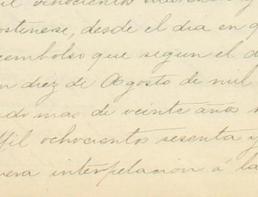 mil ochocientos
ostenerse, desde el dia en q
eembolso que segun el d
en diez de Agosto de mil
ido mas de veinte años
Mil ochocientos sesenta y
uera interpelacion á la